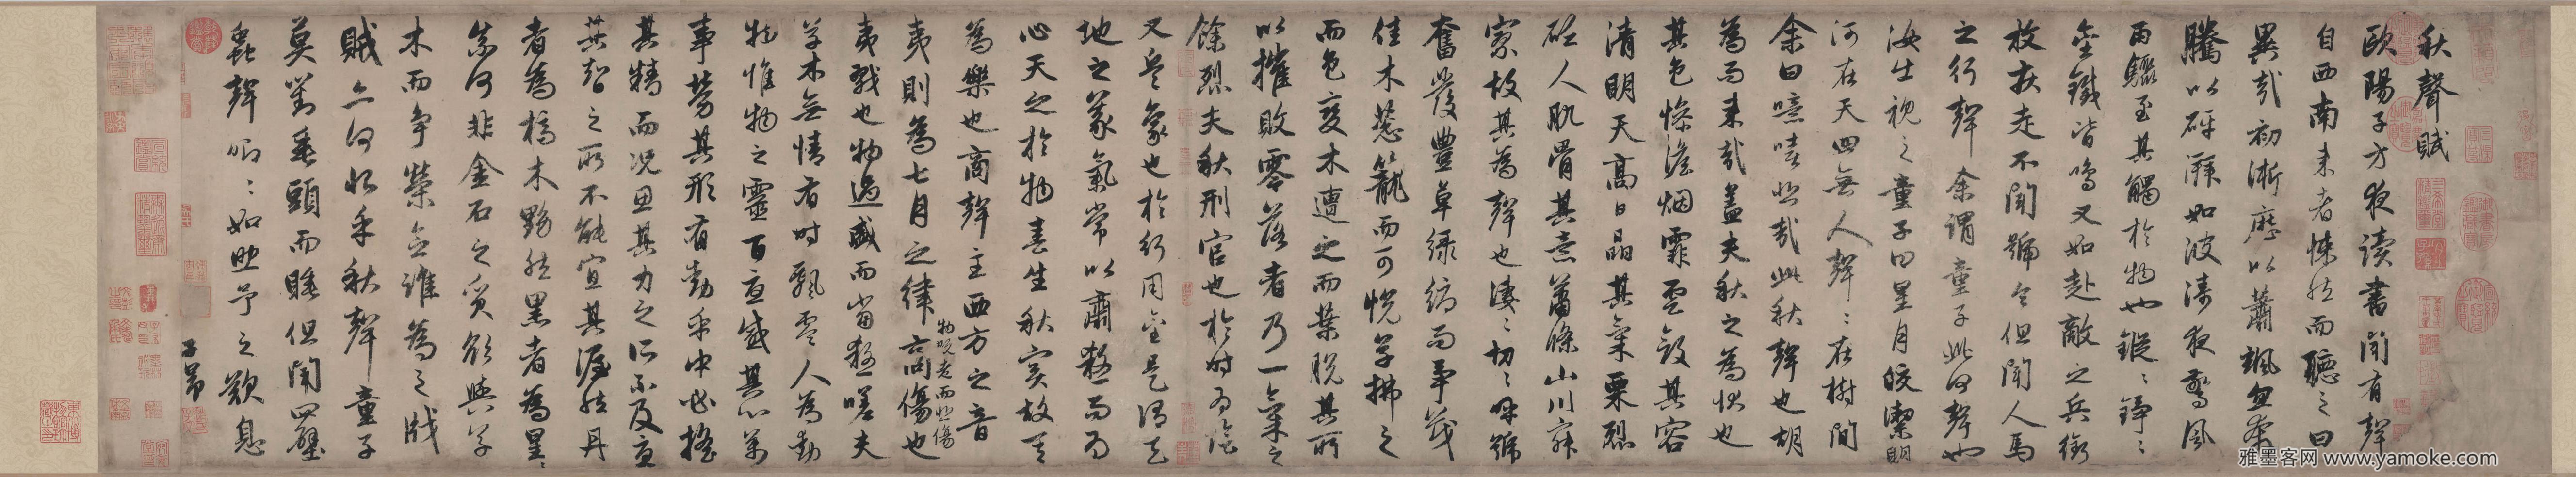 秋聲賦
歐陽子方夜讀書聞有聲
自西南来者悚然而聽之曰
異哉初淅瀝以蕭颯忽奔
騰以砰湃如波濤夜驚風
雨驟至其觸於物也鏦〻錚〻
金鐵皆鳴又如赴敵之兵銜
枚疾走不聞號令但聞人馬
之行聲余謂童子此何聲也
汝出視之童子曰星月皎潔明
河在天四無人聲〻在樹間
余曰噫嘻悲哉此秋聲也胡
為而来哉蓋夫秋之為狀也
其色慘澹烟霏雲斂其容
清明天高日晶其氣栗烈
砭人肌骨其意蕭條山川寂
寥故其為聲也淒〻切〻呼號
奮發豐草緑縟而争茂
佳木葱籠而可悅草拂之
而色變木遭之而葉脫其所
以摧敗零落者乃一氣之
餘烈夫秋刑官也於時為陰
又兵象也於行用金是謂天
地之義氣常以肅殺而為
心天之於物春生秋實故其
為樂也商聲主西方之音
夷則為七月之律商傷也
物既老而悲傷
夷戮也物過盛而當殺嗟夫
草木無情有時飄零人為動
物惟物之靈百憂感其心萬
事勞其形有動乎中必搖
其精而况思其力之所不及憂
其智之所不能宜其渥然丹
者為槁木黟然黑者為星〻
奈何非金石之質欲與草
木而争榮念誰為之戕
賊亦何恨乎秋聲童子
莫對垂頭而睡但聞四壁
蟲聲唧〻如助予之歎息
子昂
雅墨客网 www.yamoke.com